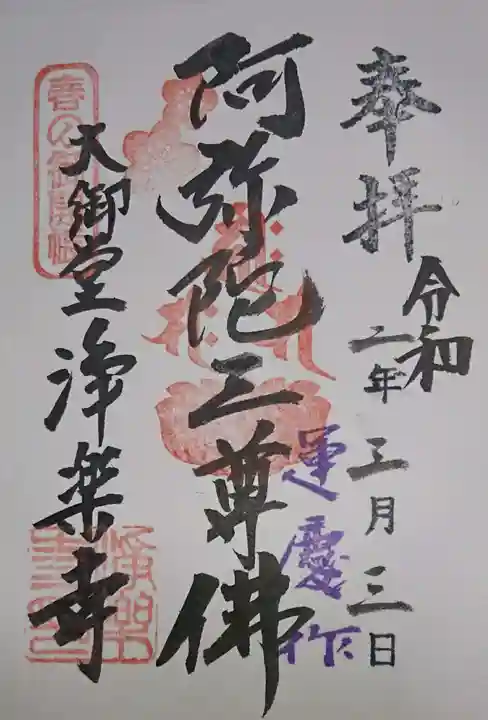 奉拝
令和
二年三月三日
運慶作
阿弥陀三尊佛
大御堂浄楽寺
春の御開帳